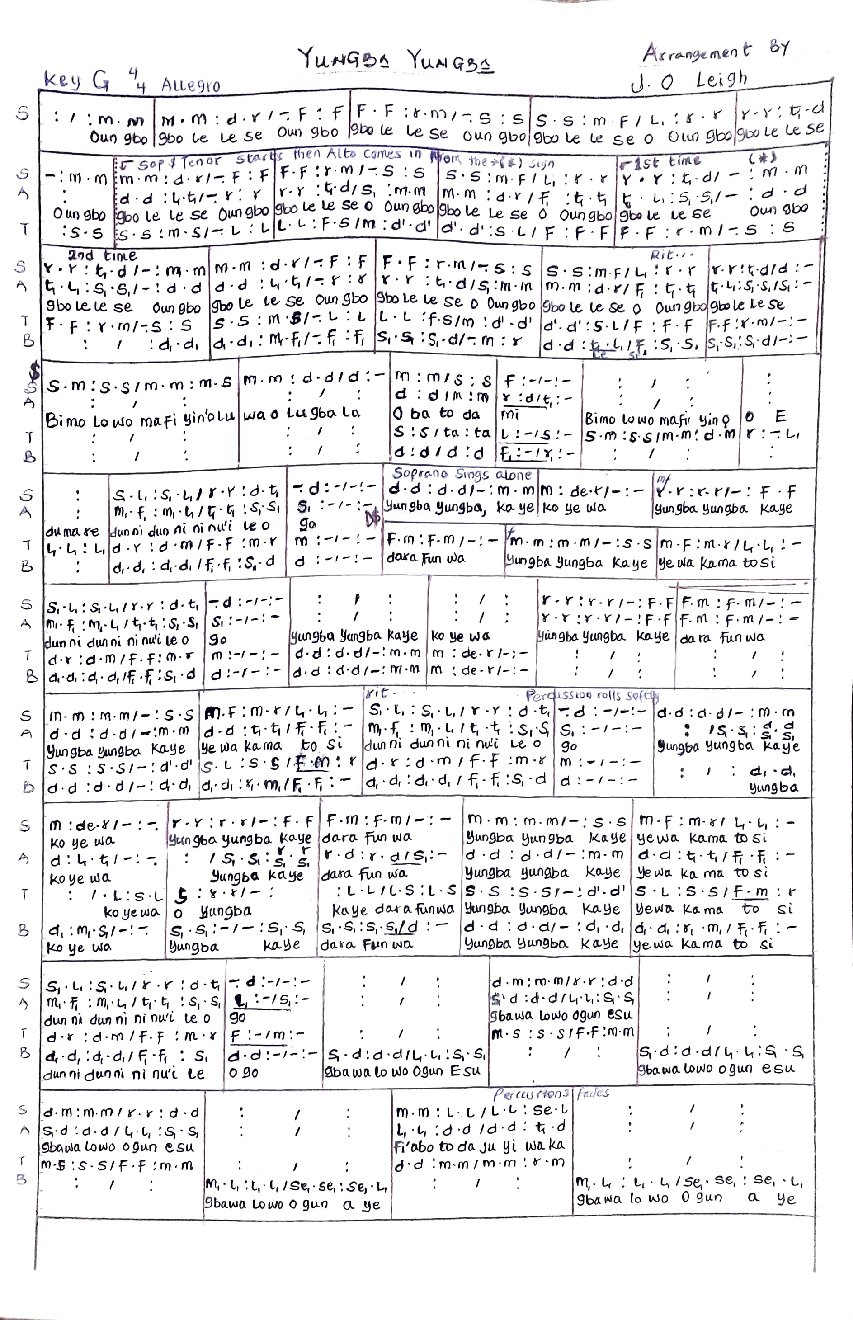 YUNGBA YUNGBA
Arrangement By
J. O Leigh
Key G 4/4 Allegro
S : / : m.m | m.m : d.r/-. F : F | F.F : r.m/-. S : S | S.S : m.F / L₁ : r.r | r.r : t₁.d
Oun gbo | gbo le le se Oun gbo | gbo le le se Oun gbo | gbo le le se O Oun gbo | gbo le le se
Sop & Tenor starts then Alto comes in from the (*) sign 1st time (*)
S -: m.m | m.m : d.r/-. F : F | F.F : r.m/-. S : S | S.S : m.F/L₁ : r.r | r.r : t₁.d/-: m.m
A : | d.d : L₁.t₁/-. r : r | r.r : t₁.d/S₁ : m.m | m.m : d.r/F₁ : t₁.t₁ | t₁.L₁ : S₁.S₁/-: d.d
Oun gbo | gbo le le se Oun gbo | gbo le le se O Oun gbo | gbo le le se O Oun gbo | gbo le le se Oun gbo
T : S.S | S.S : m.S/-. L : L | L.L : F.S/m : d'.d' | d'.d' : S.L/F : F.F | F.F : r.m/-. S : S
2nd time Rit...
S r.r : t₁.d/-: m.m | m.m : d.r/-. F : F | F.F : r.m/-. S : S | S.S : m.F/L₁ : r.r | r.r : t₁.d/d :-
A t₁.L₁ : S₁.S₁/-: d.d | d.d : L₁.t₁/-. r : r | r.r : t₁.d/S₁ : m.m | m.m : d.r/F₁ : t₁.t₁ | t₁.L₁ : S₁.S₁/S₁ :-
gbo le le se Oun gbo | gbo le le se Oun gbo | gbo le le se O Oun gbo | gbo le le se O Oun gbo | gbo le le se
T F.F : r.m/-. S : S | S.S : m.S/-. L : L | L.L : F.S/m : d'.d' | d'.d' : S.L/F : F.F | F.F : r.m/-:-
B : / : d₁.d₁ | d₁.d₁ : m₁.F₁/-. F₁ : F₁ | S₁.S₁ : S₁.d/-. m : r | d.d : t₁.L₁/F₁ : S₁.S₁ | S₁.S₁ : S₁.d/-:-
S S.m : S.S/m.m : m.S | m.m : d.d/d :- | m : m/S : S | F :-/-:- | : / : | :
A : / : | : / : | d : d/m : m | r : d/t₁ :- | : / : | :
Bimo lo wo mafi yin'o lu | wa o lugba la | O ba to da | mi | Bimo lo wo mafi yin o | O E
T : / : | : / : | S : S/ta : ta | L :-/S :- | S.m : S.S/m.m : d.m | r :-. L₁
B : / : | : / : | d : d/d : d | F₁ :-/r₁ :- | : / : | :
Soprano Sings alone
S : | S₁.L₁ : S₁.L₁/r.r : d.t₁ | -. d :-/-:- | d.d : d.d/-: m.m | m : de.r/-:- | r.r : r.r/-: F.F
A : | m₁.F₁ : m₁.L₁/t₁.t₁ : S₁.S₁ | S₁ :-/-:- | Yungba Yungba, ka ye | ko ye wa | Yungba Yungba kaye
dumare | dun ni dun ni ni nu'i le o | go
T L₁.L₁ : L₁ | d.r : d.m/F.F : m.r | m :-/-:- | F.m : F.m/-:- | m.m : m.m/-: S.S | m.F : m.r/L₁.L₁ :-
B : | d₁.d₁ : d₁.d₁/F₁.F₁ : S₁.d | d :-/-:- | dara fun wa | Yungba Yungba kaye | ye wa kama to si
S S₁.L₁ : S₁.L₁/r.r : d.t₁ | -. d :-/-:- | : / : | : / : | r.r : r.r/-: F.F | F.m : F.m/-:-
A m₁.F₁ : m₁.L₁/t₁.t₁ : S₁.S₁ | S₁ :-/-:- | : / : | : / : | r.r : r.r/-: F.F | F.m : F.m/-:-
dun ni dun ni ni nu'i le o | go | Yungba Yungba kaye | ko ye wa | Yungba Yungba kaye | dara fun wa
T d.r : d.m/F.F : m.r | m :-/-:- | d.d : d.d/-: m.m | m : de.r/-:- | : / : | : / :
B d₁.d₁ : d₁.d₁/F₁.F₁ : S₁.d | d :-/-:- | d.d : d.d/-: m.m | m : de.r/-:- | : / : | : / :
rit. Percussion rolls softly
S m.m : m.m/-: S.S | m.F : m.r/L₁.L₁ :- | S₁.L₁ : S₁.L₁/r.r : d.t₁ | -. d :-/-:- | d.d : d.d/-: m.m
A d.d : d.d/-: m.m | d.d : t₁.t₁/F₁.F₁ :- | m₁.F₁ : m₁.L₁/t₁.t₁ : S₁.S₁ | S₁ :-/-:- | : /S₁.S₁ : d.d
Yungba Yungba kaye | ye wa kama to si | dun ni dun ni ni nu'i le o | go | Yungba Yungba kaye
T S.S : S.S/-: d'.d' | S.L : S.S/F.m : r | d.r : d.m/F.F : m.r | m :-/-:- | : / : d₁.d₁
B d.d : d.d/-: d₁.d₁ | d₁.d₁ : r₁.m₁/F₁.F₁ :- | d₁.d₁ : d₁.d₁/F₁.F₁ : S₁.d | d :-/-:- | Yungba
S m : de.r/-:- | r.r : r.r/-: F.F | F.m : F.m/-:- | m.m : m.m/-: S.S | m.F : m.r/L₁.L₁ :-
ko ye wa | Yungba Yungba kaye | dara fun wa | Yungba Yungba kaye | ye wa kama to si
A d : L₁.t₁/-:- | : /S₁.S₁ : r.r | r.d : r.d/S₁ :- | d.d : d.d/-: m.m | d.d : t₁.t₁/F₁.F₁ :-
ko ye wa | Yungba kaye | dara fun wa | Yungba Yungba kaye | Ye wa kama to si
T : /.L : S.L | S : r.r/-: | : L.L/L.S : L.S | S.S : S.S/-: d'.d' | S.L : S.S/F.m : r
ko ye wa | O Yungba | kaye dara fun wa | Yungba Yungba kaye | Ye wa ka ma to si
B d₁ : m₁.S₁/-:- | S₁.S₁ :-/-: S₁.S₁ | S₁.S₁ : S₁.S₁/d :- | d.d : d.d/-: d₁.d₁ | d₁.d₁ : r₁.m₁/F₁.F₁ :-
ko ye wa | Yungba kaye | dara fun wa | Yungba Yungba kaye | Ye wa kama to si
S S₁.L₁ : S₁.L₁/r.r : d.t₁ | -. d :-/-:- | : / : | d.m : m.m/r.r : d.d | : / :
A m₁.F₁ : m₁.L₁/t₁.t₁ : S₁.S₁ | L₁ :-/S₁ :- | : / : | S₁.d : d.d/L₁.L₁ : S₁.S₁ | : / :
dun ni dun ni ni nu'i le o | go | gbawa lowo ogun esu
T d.r : d.m/F.F : m.r | F :-/m :- | : / : | m.S : S.S/F.F : m.m | : / :
B d₁.d₁ : d₁.d₁/F₁.F₁ : S₁ | d.d :-/-:- | S₁.d : d.d/L₁.L₁ : S₁.S₁ | : / : | S₁.d : d.d/L₁.L₁ : S₁.S₁
dun ni dun ni ni nu'i le | o go | gbawa lo wo Ogun Esu | gbawa lowo ogun esu
Percussions fades
S d.m : m.m/r.r : d.d | : / : | m.m : L.L/L.L : Se.L | : / :
A S₁.d : d.d/L₁.L₁ : S₁.S₁ | : / : | L₁.L₁ : d.d/d.d : t₁.d | : / :
gbawa lowo ogun esu | Fi'abo to da ju yi wa ka
T m.S : S.S/F.F : m.m | : / : | d.d : m.m/m.m : r.m | : / :
B : / : | m₁.L₁ : L₁.L₁/Se₁.Se₁ : Se₁.L₁ | : / : | m₁.L₁ : L₁.L₁/Se₁.Se₁ : Se₁.L₁
gbawa lowo Ogun a ye | gbawa lo wo O gun a ye